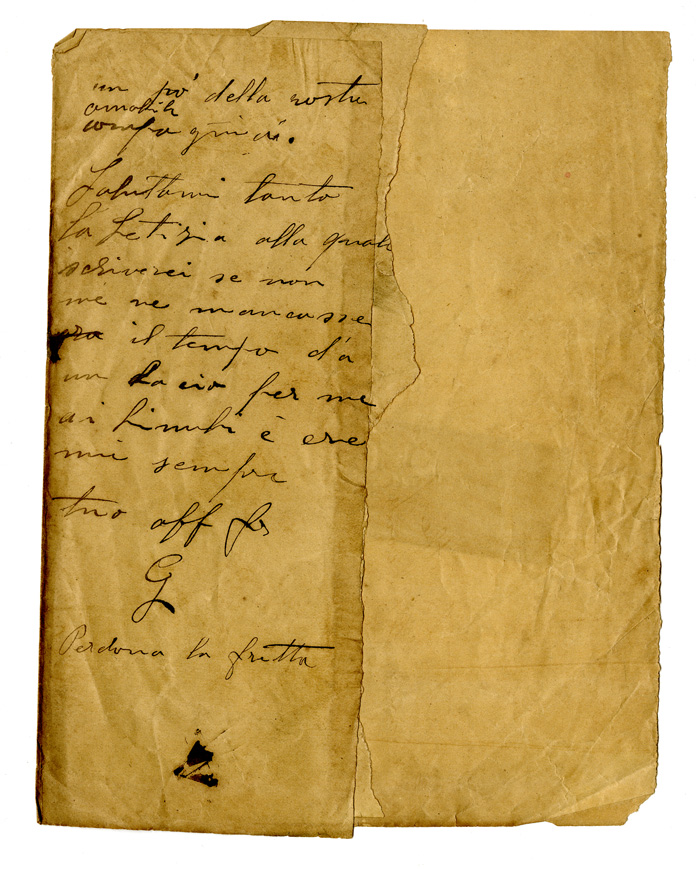 un po' della vostra
amabile
compagnia.
Salutami tanto
la Letizia alla quale
iscriverei se non
me ne mancasse
ora il tempo dà
un bacio per me
ai bimbi è cre
mi sempre
tuo aff
G
Perdona la fretta